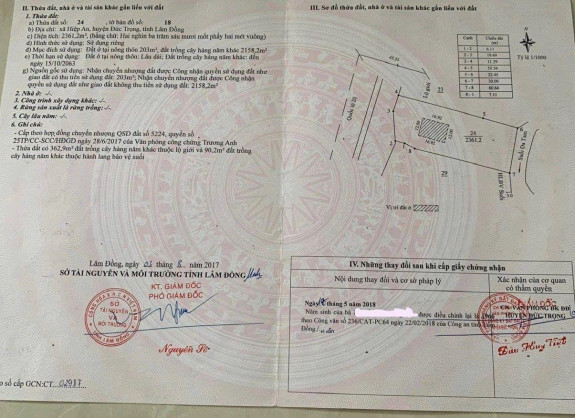 II. Thửa đất, nhà ở và tài sản khác gắn liền với đất
1. Thửa đất:
a) Thửa đất số: 24 , tờ bản đồ số: 18
b) Địa chỉ: xã Hiệp An, huyện Đức Trọng, tỉnh Lâm Đồng
c) Diện tích: 2361,2m², (bằng chữ: Hai nghìn ba trăm sáu mươi mốt phẩy hai mét vuông)
d) Hình thức sử dụng: Sử dụng riêng
đ) Mục đích sử dụng: Đất ở tại nông thôn 203m²; đất trồng cây hàng năm khác 2158,2m²
e) Thời hạn sử dụng: Đất ở tại nông thôn: Lâu dài; Đất trồng cây hàng năm khác: đến
ngày 15/10/2063
g) Nguồn gốc sử dụng: Nhận chuyển nhượng đất được Công nhận quyền sử dụng đất như
giao đất có thu tiền sử dụng đất: 203m²; Nhận chuyển nhượng đất được Công nhận
quyền sử dụng đất như giao đất không thu tiền sử dụng đất: 2158,2m²
2. Nhà ở: -/-.
3. Công trình xây dựng khác: -/-.
4. Rừng sản xuất là rừng trồng: -/-.
5. Cây lâu năm: -/-.
6. Ghi chú:
- Cấp theo hợp đồng chuyển nhượng QSD đất số 5224, quyển số
25TP/CC-SCC/HĐGD ngày 28/6/2017 của Văn phòng công chứng Trương Anh
- Thửa đất có 362,9m² đất trồng cây hàng năm khác thuộc lộ giới và 90,2m² đất trồng
cây hàng năm khác thuộc hành lang bảo vệ suối
Lâm Đồng, ngày 03 tháng 8 năm 2017
SỞ TÀI NGUYÊN VÀ MÔI TRƯỜNG TỈNH LÂM ĐỒNG
KT. GIÁM ĐỐC
PHÓ GIÁM ĐỐC
SỞ
TÀI NGUYÊN
VÀ
MÔI TRƯỜNG
Nguyễn
số cấp GCN:CT
III. Sơ đồ thửa đất, nhà ở và tài sản khác gắn liền với đất
Cạnh
Chiều dài
(m)
1 - 2
2 - 3
3 - 4
4 - 5
5 - 6
6 - 7
7 - 8
8 - 1
Tỷ lệ 1/1000
Quốc lộ 20
Lộ giới
23
24
2361,2
29
Suối Đa Tam
HLBV Suối
Vị trí đất ở
IV. Những thay đổi sau khi cấp giấy chứng nhận
Nội dung thay đổi và cơ sở pháp lý
Xác nhận của cơ quan
có thẩm quyền
Ngày tháng 5 năm 2018
Năm sinh của bà được điều chỉnh lại là
theo Công văn số 236/CAT-PC64 ngày 22/02/2018 của Công an tỉnh Lâm
Đồng./.
CN. VĂN PHÒNG ĐK ĐĐ
HUYỆN ĐỨC TRỌNG
Huy